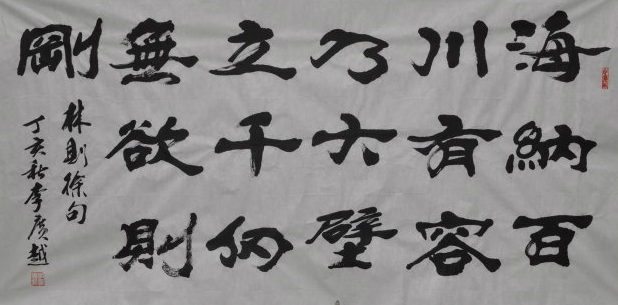 海納百
川有容
乃大壁
立千仞
無欲則
剛
林則徐句
丁亥秋李廣越